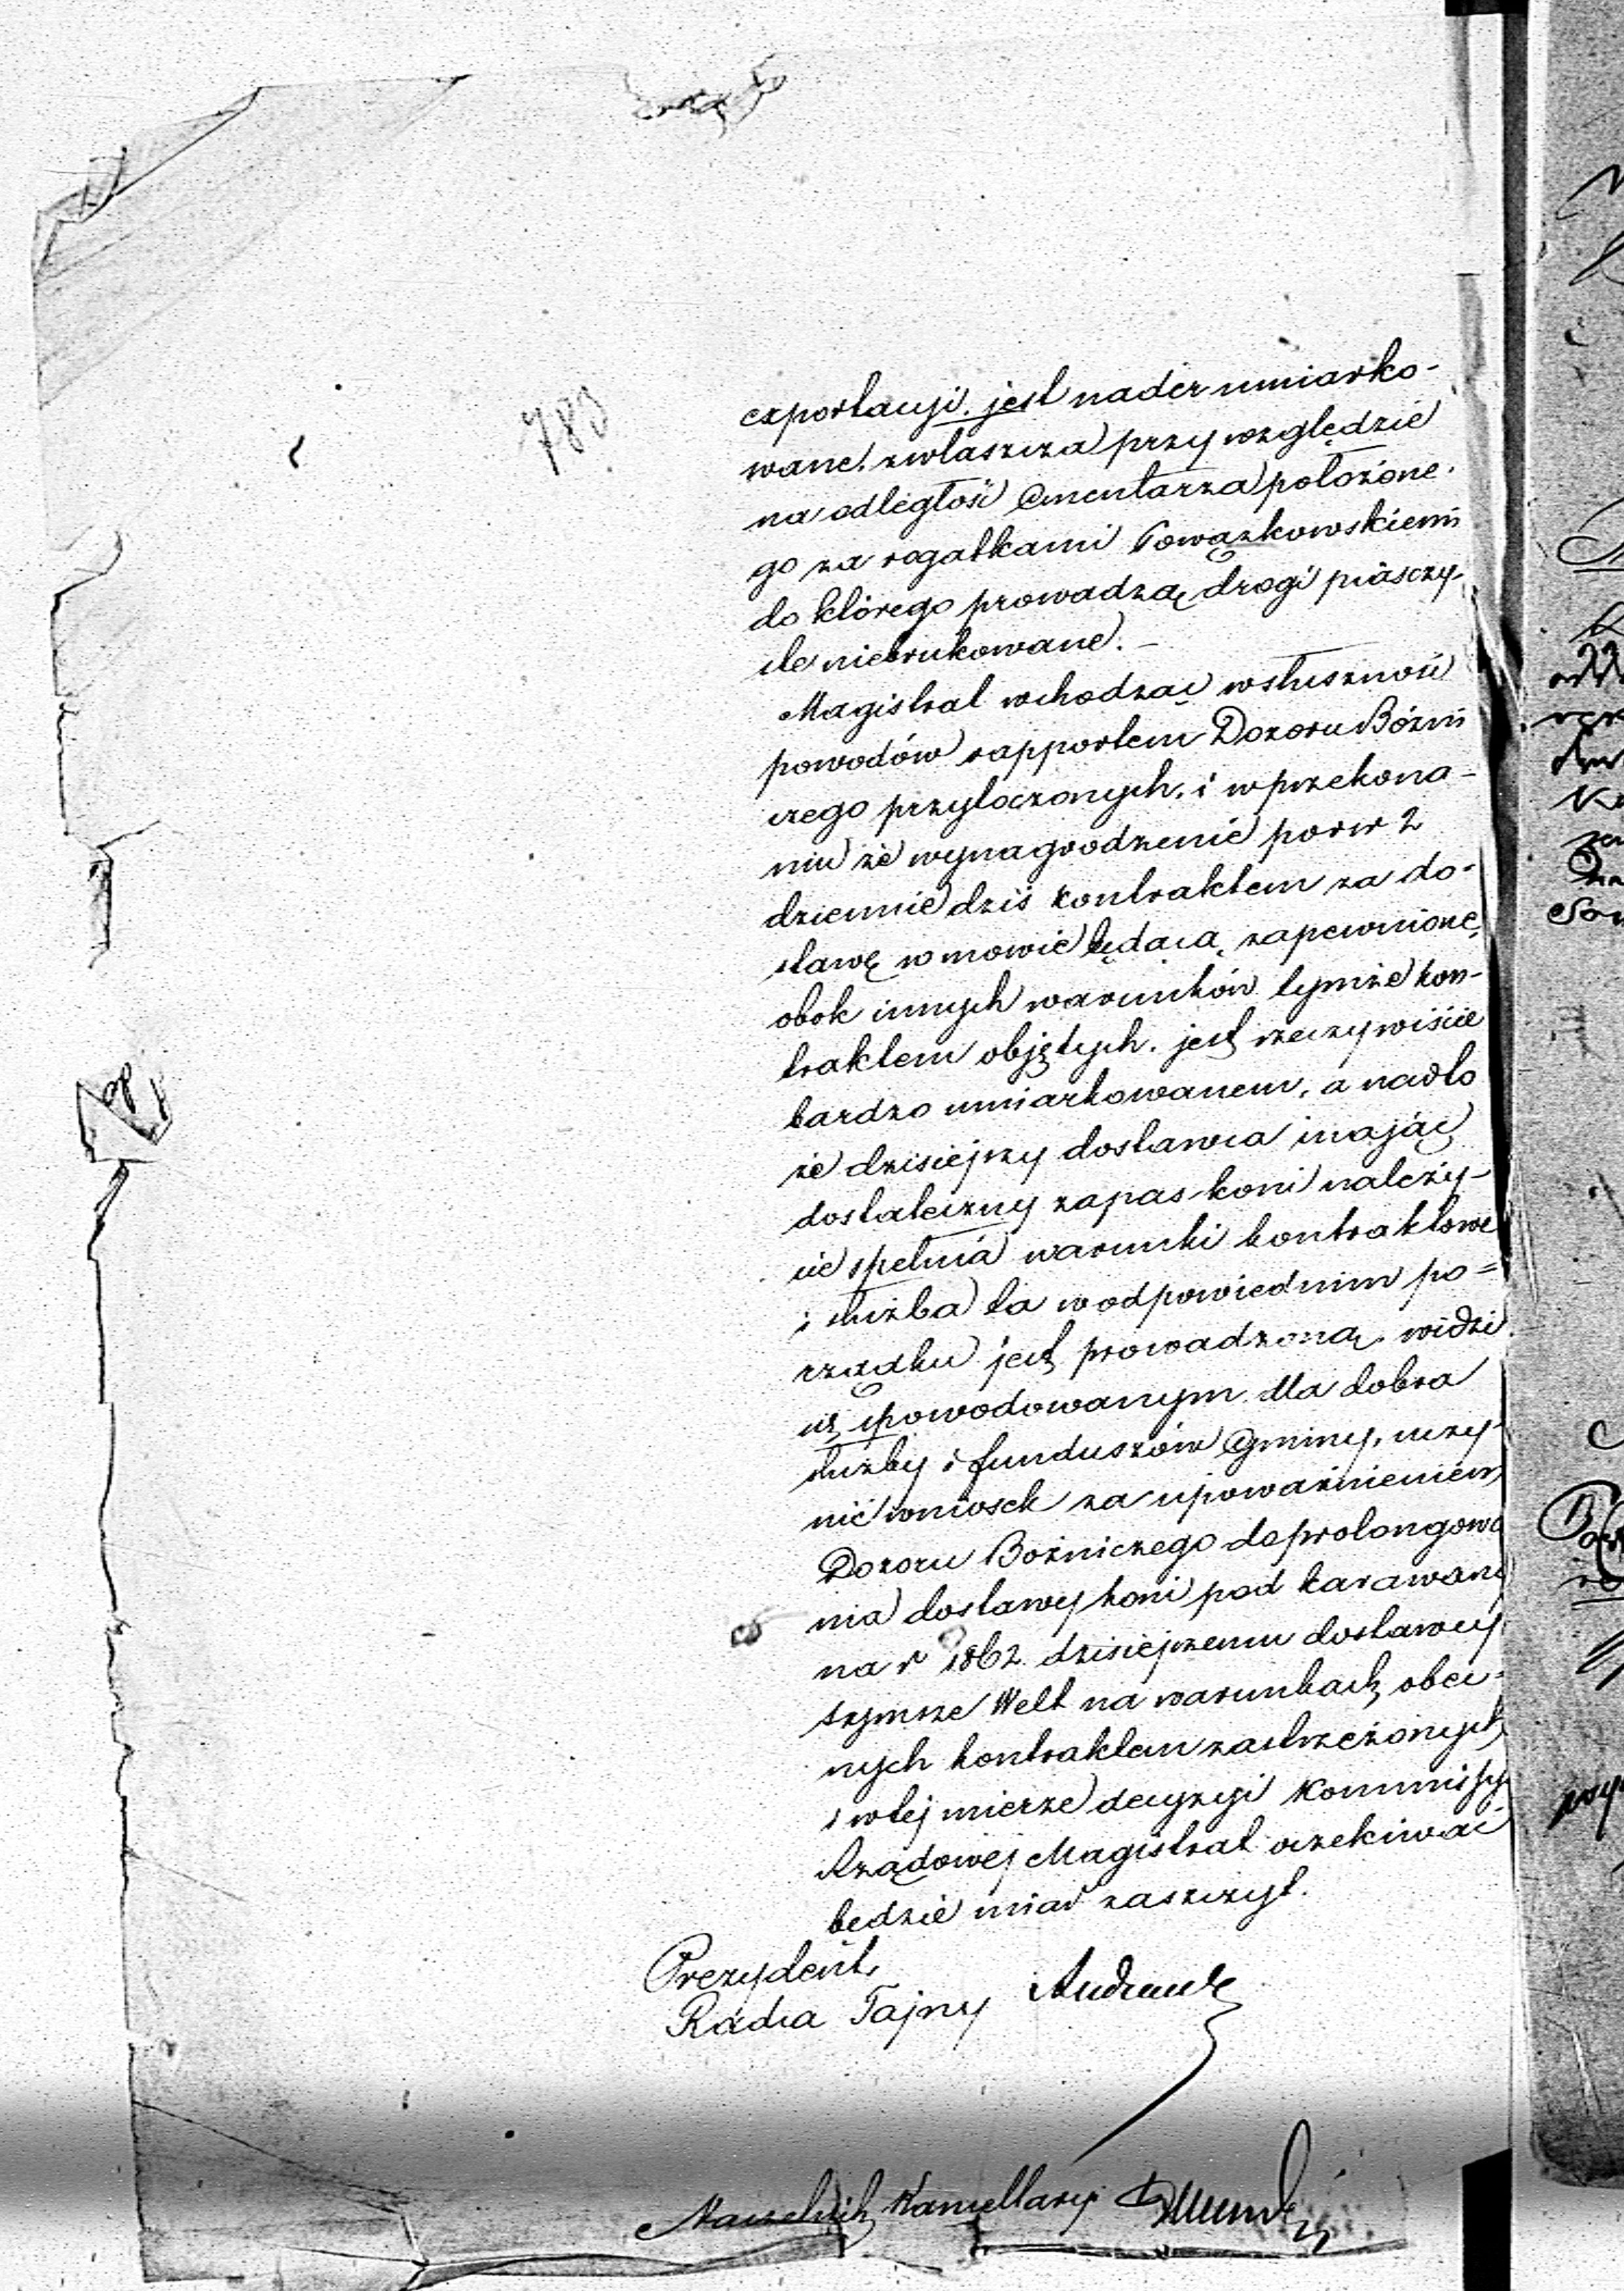 783
exportacyi. jest nader umiarko-
wane. zwłaszcza przy względzie
na odległość Cmentarza położone-
go za rogatkami Powązkowskiemi
do którego prowadzą drogi piasczy-
ste niebrukowane. –
Magistrat wchodząc w słuszność
powodów rapportem Dozoru Bóżni
czego przytoczonych. i w przekona-
niu że wynagrodzenie po rsr 2
dziennie dziś kontraktem za do-
stawę w mowie będącą zapewnione
obok innych warunków tymże kon-
traktem objętych. jest rzeczywiście
bardzo umiarkowanem, a nadto
że dzisiejszy dostawca mając
dostateczny zapas koni należy-
cie spełnia warunki kontraktowe
i służba ta w odpowiednim po=
rządku jest prowadzoną. widzi
się spowodowanym dla dobra
służby i funduszów Gminy, uczy-
nić wniosek za upoważnieniem
Dozoru Bożniczego do prolongowa
nia dostawy koni pod karawany
na r 1862 dzisiejszemu dostawcy
Szymsze Welt na warunkach obec-
nych kontraktem zastrzeżonych
i w tej mierze decyzyi Kommissyi
Rządowej Magistrat oczekiwać
będzie miał zaszczyt.
Prezydent,
Radca Tajny
Naczelnik Kancellaryi